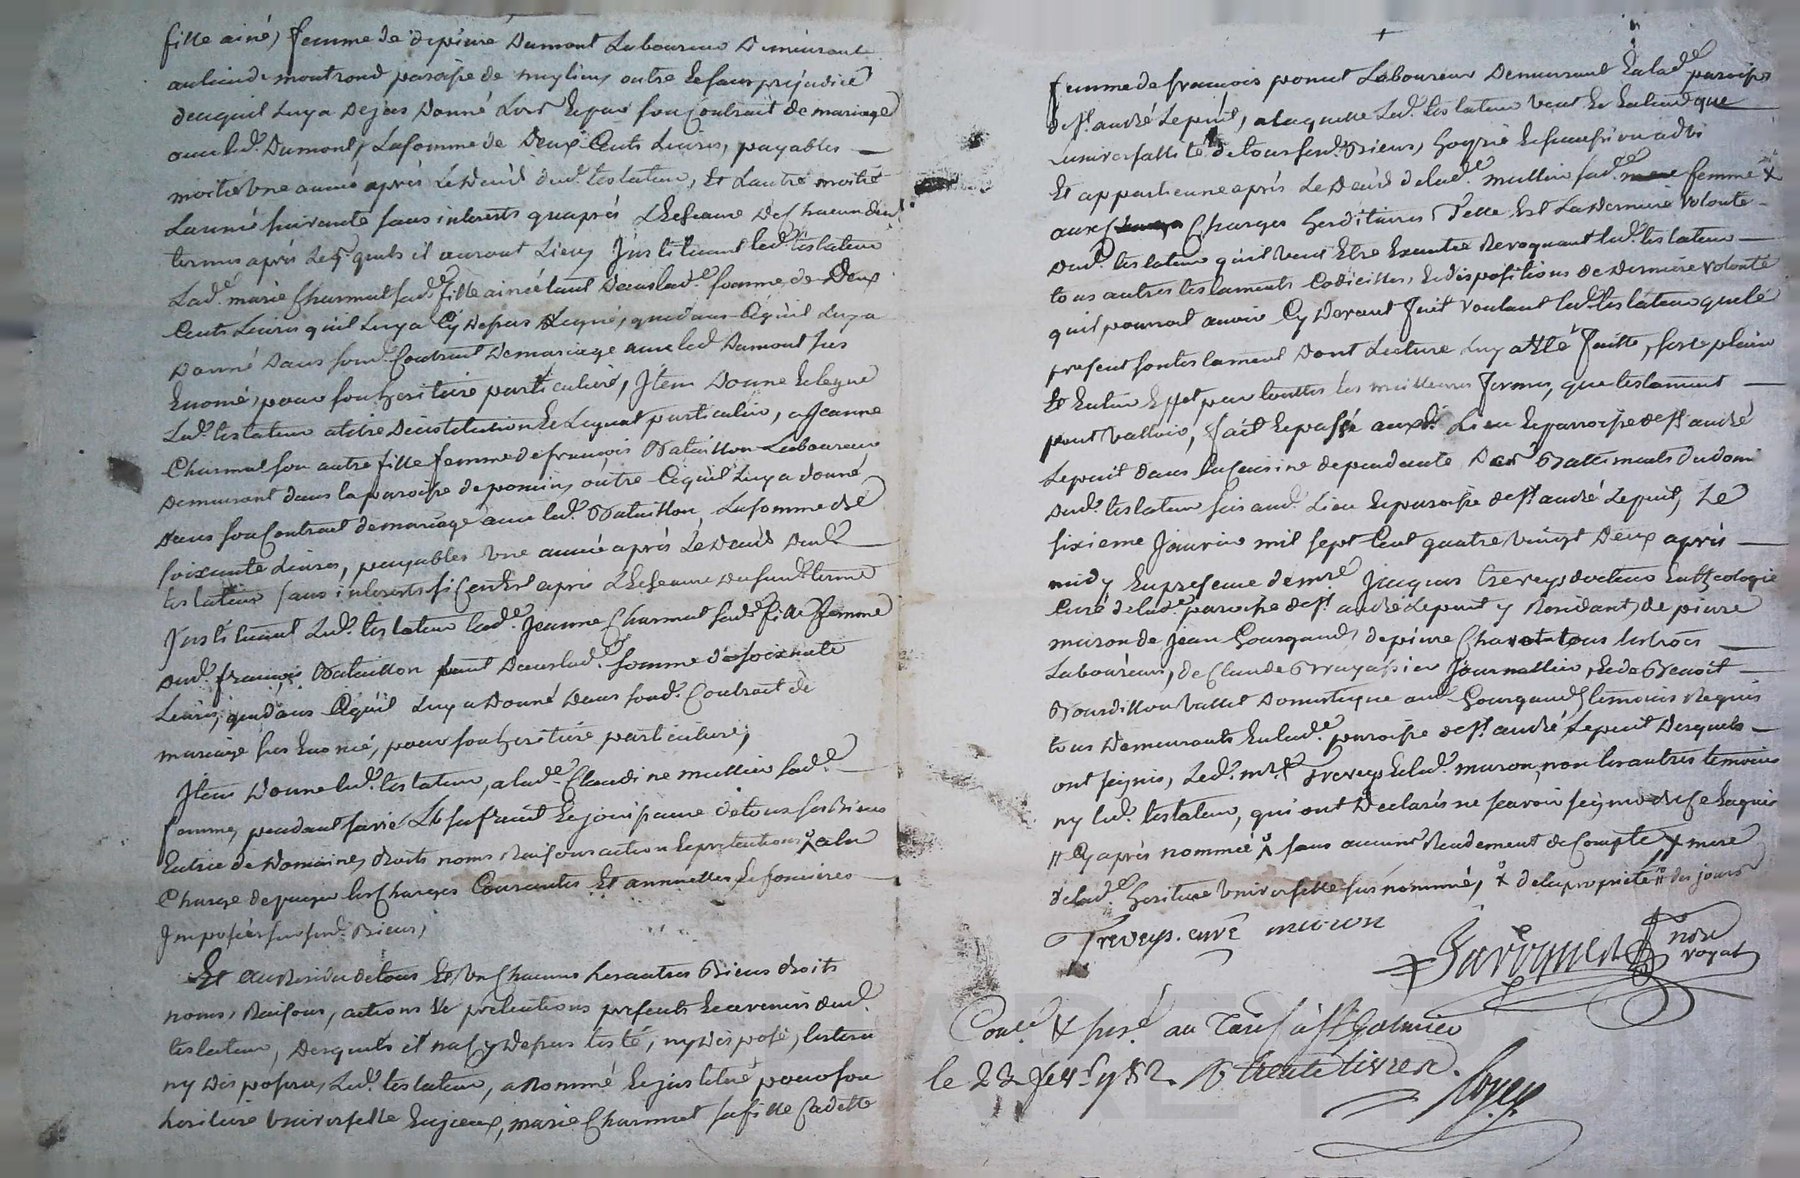 fille ainé, femme de depierre Dumont Laboureur Demeurant
au lieu de montrond paroisse de meylieu outre et sans prejudice
de ce quil luy a Dejas Donné Lors et par son Contrait de mariage
avec led. Dumont, La somme de Deux Cents Livres, payables
moitié Une année après Le Deceds dud. testateur, Et L'autre moitié
L'année suivante sans interests qu'après L'Echeance De chacun des
termes après lesquels il auront Lieu, Instituant led. testateur
Lad. marie Charmat sad. fille ainée tant Dans lad. somme de Deux
Cents Livres qu'il luy a Cy Depus Legué, que dans Ce qu'il luy a
Donné Dans son Contrait de mariage avec led. Dumont sus
Enoncé, pour son heritiere particuliere, Item Donne et legue
Led. testateur a titre D'institution et Legat particulier, a Jeanne
Charmat son autre fille femme de françois Bataillon Laboureur
Demeurant dans la paroisse de poncins, outre Ce qu'il luy a donné
Dans son Contrait de mariage avec led. Bataillon, La somme de
soixante Livres, payables Une année après Le Deceds Dud.
testateur sans interests si Ce n'est après L'Echeance dud. terme
Instituant Led. testateur lad. Jeanne Charmat sad. fille femme
Dud. françois Bataillon tant Dans lad. somme de soixante
Livres, que dans Ce qu'il luy a Donné Dans sond. Contrait de
mariage sus Enoncé, pour son heritiere particuliere,
Item Donne led. testateur, a lad. Claudine mullier sad.
femme, pendant sa vie L'usufruit Et joüissance de tous ses Biens
Entiers de Domaines, droits noms Raisons action Et pretentions a la
Charge de payer les Charges Courantes Et annuelles, et foncieres
Imposées sur send. Biens,
Et au Residu de tous Et Un Chacuns ses autres Biens droits
noms, Raisons, actions Et pretentions presents Et avenirs dud.
testateur, Desquels il n'a cy Depus testé, ny Disposé, testera
ny Disposera, Led. testateur, a Nommé Et institué pour son
heritiere Universelle Enjeux, marie Charmat sa fille Cadette
femme de françois poncet Laboureur Demeurant En lad. paroisse
de St. andré Lepuit, a laquelle Led. testateur veut Et Entend que
universalité de tous send. Biens, hoyrie et succession advienne
Et appartienne après Le Deceds de lad. mullier sad. femme x
aux Charges hereditaires Telle Est La Derniere Volonté
Dud. testateur qu'il veut Etre Executée Revoquant led. testateur
tous autres testaments Codicilles, et dispositions de Derniere Volonté
qu'il pourroit avoir Cy Devant fait voulant led. testateur que le
present son testament Dont Lecture luy a Eté faitte, sorte plein
Et Entier Effet par touttes les meilleures formes, que testament
peut Valloir, fait et passé auxd. Lieu Et paroisse de St. andré
Lepuit dans la Cuisine dependante Des Battiments du domaine
Dud. testateur sis aud. Lieu Et paroisse de St. andré Lepuit, Le
sixieme Janvier mil sept Cent quatre vingt Deux après
midy En presence de mre. Jacques treveys docteur En theologie
Curé de lad. paroisse de St. andré Lepuit y Residant, de pierre
muron de Jean Gourgaud, de pierre Chavot tous les trois
Laboureurs, de Claude Brayassier Journallier, Et de Benoit
Bourdillon Vallet Domestique aud. Gourgaud, temoins Requis
tous Demeurants En lad. paroisse de St. andré Lepuit Desquels
ont signés, Led. mr. Treveys Et led. muron, non les autres temoins
ny led. testateur, qui ont Declarés ne sçavoir signer de ce Enquis
# Cy après nommée x sans aucune Rendement de Compte x mere
de lad. heritiere Universelle sus nommée, x de la proprieté # des jours
Treveys. curé muron
non
royal
Conlé. & sceé. au tarif à St. Galmier
le 22 Janvr. 1782. R trente livres.